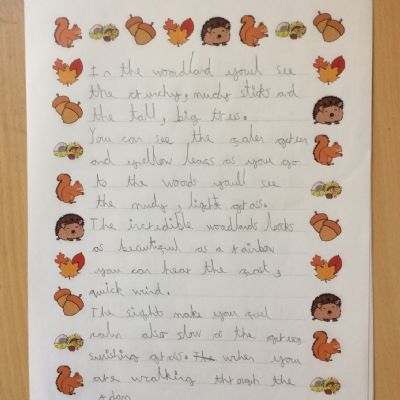 In the woodland youll see
the crunchy, mudy sticks and
the tall, big trees.
You can see the green
and yellow leaves as you go
to the woods youll see
the mudy, light grass.
The incredible woodlands looks
as beautiful as a rainbow
you can hear the
quick wind.
The sight make you feel
calm also slow as the
grass. The when you
are walking through the